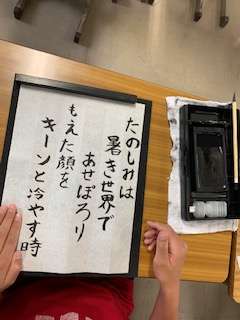 たのしみは
暑き世界で
あせぽろり
もえた顔を
キーンと冷やす時